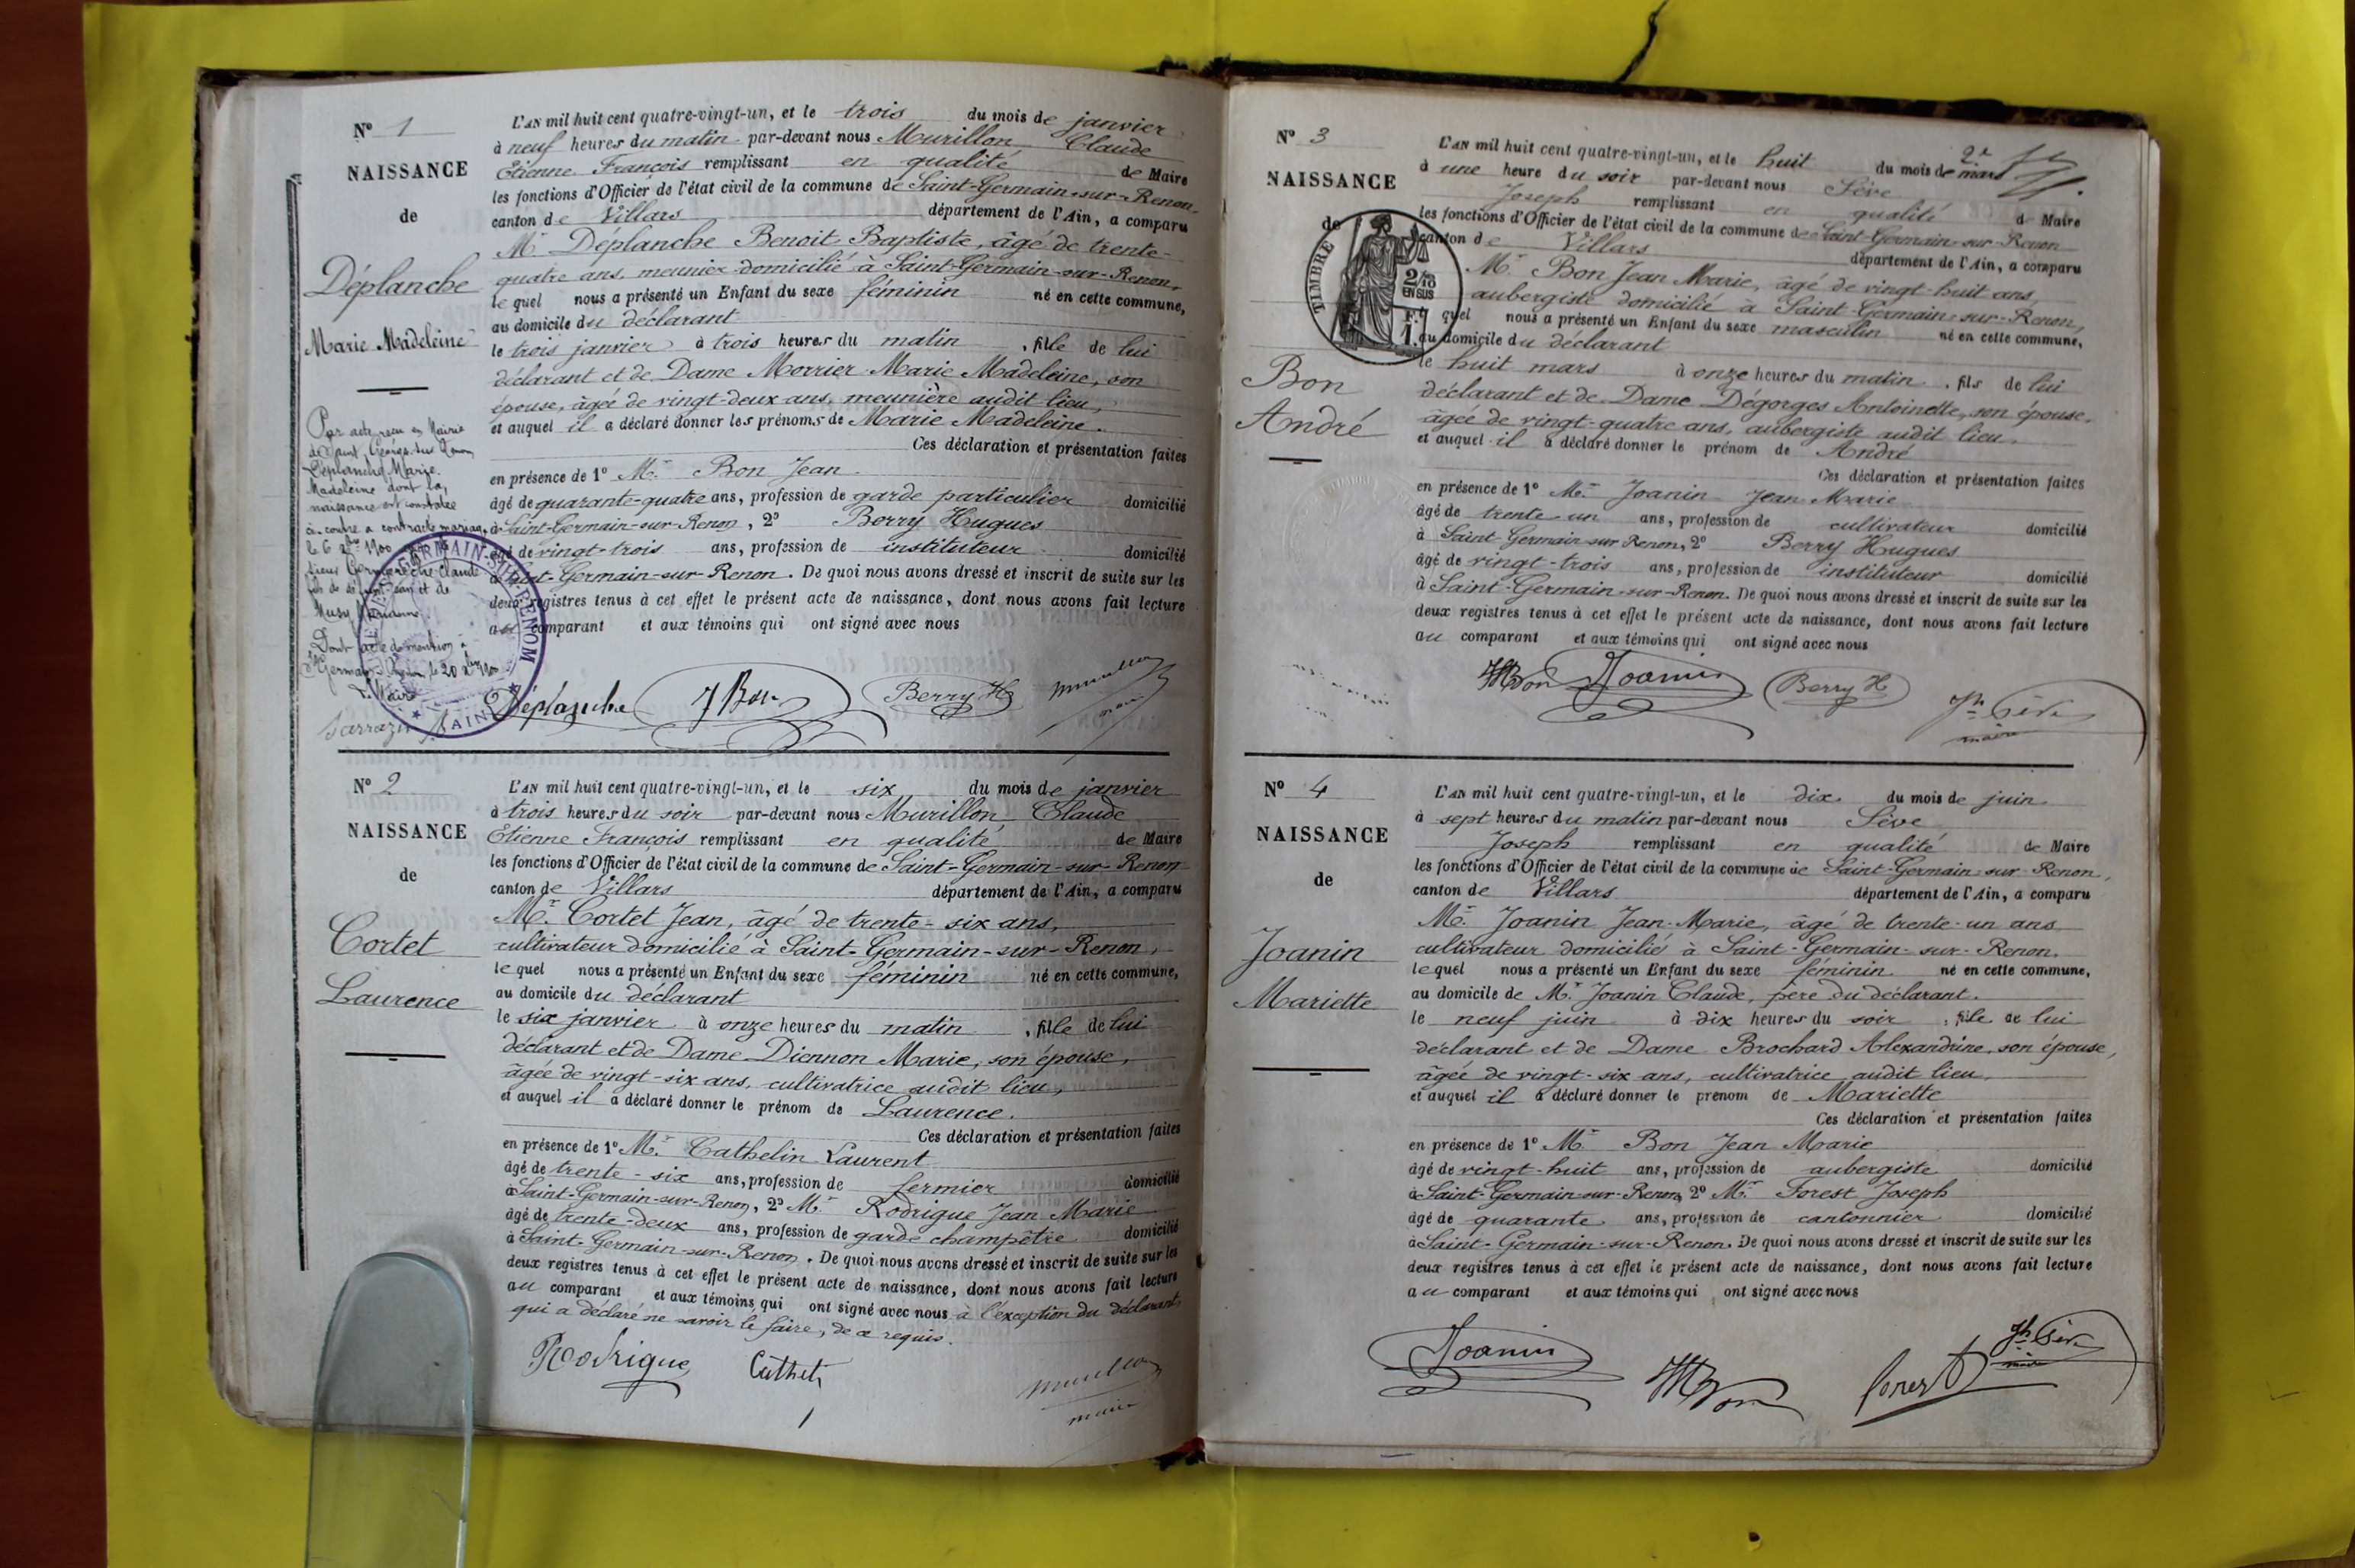 Nº 1
NAISSANCE
de
Déplanche
Marie Madeleine
Par acte reçu en Mairie
de Saint Georges sur Renon
Déplanche Marie
Madeleine dont la
naissance est constatée
ci-contre a contracté mariage
le 6 9bre 1900
sieur Claude
fils de et de
Musy
Dont acte de mention à
St Germain s/ Renon, le 20 9bre 1900
Le Maire
Sarrazin
GERMAIN-SUR-RENOM
AIN
L'AN mil huit cent quatre-vingt-un, et le trois du mois de janvier
à neuf heures du matin par-devant nous Murillon Claude
Etienne François remplissant en qualité de Maire
les fonctions d'Officier de l'état civil de la commune de Saint-Germain-sur-Renon,
canton de Villars département de l'Ain, a comparu
Mr Déplanche Benoit Baptiste, âgé de trente-
quatre ans, meunier domicilié à Saint-Germain-sur-Renon,
lequel nous a présenté un Enfant du sexe féminin né en cette commune,
au domicile du déclarant
le trois janvier à trois heures du matin, fille de lui
déclarant et de Dame Morrier Marie Madeleine, son
épouse, âgée de vingt-deux ans, meunière audit lieu,
et auquel il a déclaré donner les prénoms de Marie Madeleine.
Ces déclaration et présentation faites
en présence de 1º Mr Bon Jean
âgé de quarante-quatre ans, profession de garde particulier domicilié
à Saint-Germain-sur-Renon, 2º Berry Hugues
âgé de vingt-trois ans, profession de instituteur domicilié
à Saint-Germain-sur-Renon. De quoi nous avons dressé et inscrit de suite sur les
deux registres tenus à cet effet le présent acte de naissance, dont nous avons fait lecture
au comparant et aux témoins qui ont signé avec nous
Déplanche J Bon Berry H Murillon
maire
Nº 2
NAISSANCE
de
Cortet
Laurence
L'AN mil huit cent quatre-vingt-un, et le six du mois de janvier
à trois heures du soir par-devant nous Murillon Claude
Etienne François remplissant en qualité de Maire
les fonctions d'Officier de l'état civil de la commune de Saint-Germain-sur-Renon
canton de Villars département de l'Ain, a comparu
Mr Cortet Jean, âgé de trente-six ans,
cultivateur domicilié à Saint-Germain-sur-Renon,
lequel nous a présenté un Enfant du sexe féminin né en cette commune,
au domicile du déclarant
le six janvier à onze heures du matin, fille de lui
déclarant et de Dame Diennon Marie, son épouse,
âgée de vingt-six ans, cultivatrice audit lieu,
et auquel il a déclaré donner le prénom de Laurence.
Ces déclaration et présentation faites
en présence de 1º Mr Cathelin Laurent
âgé de trente-six ans, profession de fermier domicilié
à Saint-Germain-sur-Renon, 2º Mr Rodrigue Jean Marie
âgé de trente-deux ans, profession de garde champêtre domicilié
à Saint-Germain-sur-Renon. De quoi nous avons dressé et inscrit de suite sur les
deux registres tenus à cet effet le présent acte de naissance, dont nous avons fait lecture
au comparant et aux témoins qui ont signé avec nous à l'exception du déclarant
qui a déclaré ne savoir le faire, de ce requis.
Rodrigue Murillon
maire
Nº 3
NAISSANCE
de
TIMBRE
2/10
EN SUS
Bon
André
L'AN mil huit cent quatre-vingt-un, et le huit du mois de mars
à une heure du soir par-devant nous Sève
Joseph remplissant en qualité de Maire
les fonctions d'Officier de l'état civil de la commune de Saint-Germain-sur-Renon
canton de Villars département de l'Ain, a comparu
Mr Bon Jean Marie, âgé de vingt-huit ans,
aubergiste domicilié à Saint-Germain-sur-Renon,
quel nous a présenté un Enfant du sexe masculin né en cette commune,
au domicile du déclarant
le huit mars à onze heures du matin, fils de lui
déclarant et de Dame Dégorges Antoinette, son épouse,
âgée de vingt-quatre ans, aubergiste audit lieu,
et auquel il a déclaré donner le prénom de André
Ces déclaration et présentation faites
en présence de 1º Mr Joanin Jean Marie
âgé de trente un ans, profession de cultivateur domicilié
à Saint-Germain-sur-Renon, 2º Berry Hugues
âgé de vingt-trois ans, profession de instituteur domicilié
à Saint-Germain-sur-Renon. De quoi nous avons dressé et inscrit de suite sur les
deux registres tenus à cet effet le présent acte de naissance, dont nous avons fait lecture
au comparant et aux témoins qui ont signé avec nous
JMBon Joanin Berry H Jh Sève
maire
Nº 4
NAISSANCE
de
Joanin
Mariette
L'AN mil huit cent quatre-vingt-un, et le dix du mois de juin
à sept heures du matin par-devant nous Sève
Joseph remplissant en qualité de Maire
les fonctions d'Officier de l'état civil de la commune de Saint-Germain-sur-Renon,
canton de Villars département de l'Ain, a comparu
Mr Joanin Jean-Marie, âgé de trente-un ans
cultivateur domicilié à Saint-Germain-sur-Renon,
lequel nous a présenté un Enfant du sexe féminin né en cette commune,
au domicile de Mr Joanin Claude, père du déclarant.
le neuf juin à dix heures du soir, fille de lui
déclarant et de Dame Brochard Alexandrine, son épouse,
âgée de vingt-six ans, cultivatrice audit lieu,
et auquel il a déclaré donner le prénom de Mariette
Ces déclaration et présentation faites
en présence de 1º Mr Bon Jean Marie
âgé de vingt-huit ans, profession de aubergiste domicilié
à Saint-Germain-sur-Renon, 2º Mr Forest Joseph
âgé de quarante ans, profession de cantonnier domicilié
à Saint-Germain-sur-Renon. De quoi nous avons dressé et inscrit de suite sur les
deux registres tenus à cet effet le présent acte de naissance, dont nous avons fait lecture
au comparant et aux témoins qui ont signé avec nous
Joanin JMBon forest Jh Sève
maire